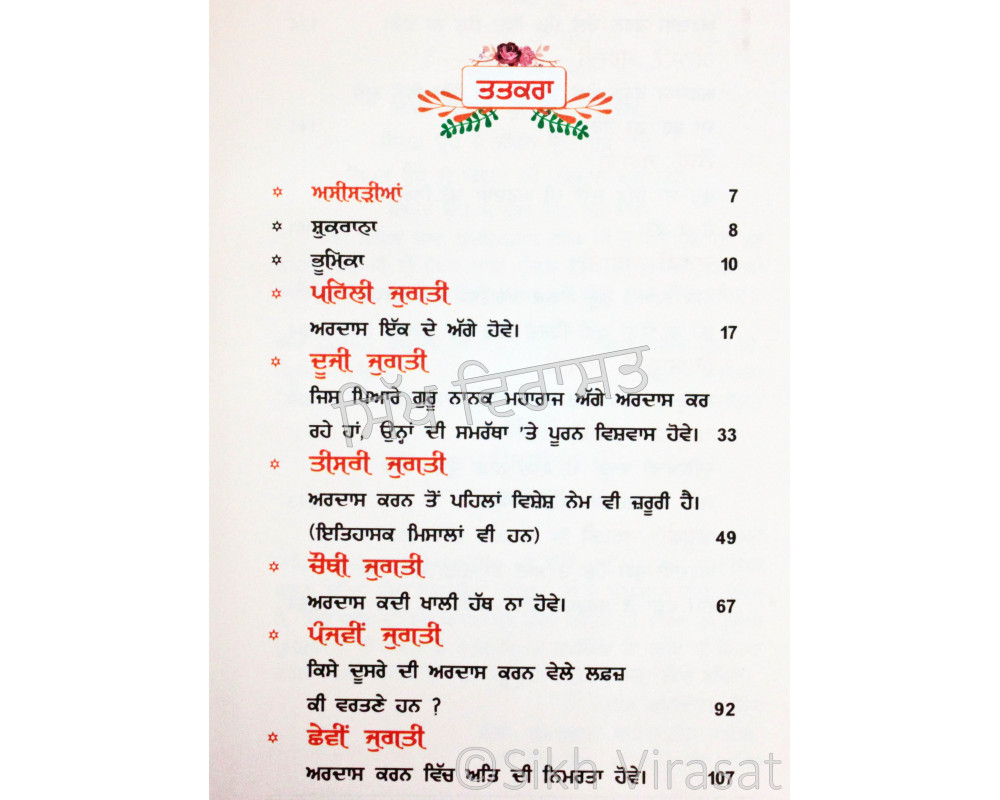 ਤਤਕਰਾ
ਅਸੀਸੜੀਆਂ 7
ਸ਼ੁਕਰਾਨਾ 8
ਭੂਮਿਕਾ 10
ਪਹਿਲੀ ਜੁਗਤੀ
ਅਰਦਾਸ ਇੱਕ ਦੇ ਅੱਗੇ ਹੋਵੇ। 17
ਦੂਜੀ ਜੁਗਤੀ
ਜਿਸ ਪਿਆਰੇ ਗੁਰੂ ਨਾਨਕ ਮਹਾਰਾਜ ਅੱਗੇ ਅਰਦਾਸ ਕਰ
ਰਹੇ ਹਾਂ, ਉਨ੍ਹਾਂ ਦੀ ਸਮਰੱਥਾ 'ਤੇ ਪੂਰਨ ਵਿਸ਼ਵਾਸ ਹੋਵੇ। 33
ਸਿੱਖ ਵਿਰਾਸਤ
ਤੀਸਰੀ ਜੁਗਤੀ
ਅਰਦਾਸ ਕਰਨ ਤੋਂ ਪਹਿਲਾਂ ਵਿਸ਼ੇਸ਼ ਨੇਮ ਵੀ ਜ਼ਰੂਰੀ ਹੈ।
(ਇਤਿਹਾਸਕ ਮਿਸਾਲਾਂ ਵੀ ਹਨ) 49
ਚੌਥੀ ਜੁਗਤੀ
ਅਰਦਾਸ ਕਦੀ ਖਾਲੀ ਹੱਥ ਨਾ ਹੋਵੇ। 67
ਪੰਜਵੀਂ ਜੁਗਤੀ
ਕਿਸੇ ਦੂਸਰੇ ਦੀ ਅਰਦਾਸ ਕਰਨ ਵੇਲੇ ਲਫ਼ਜ਼
ਕੀ ਵਰਤਣੇ ਹਨ ? 92
ਛੇਵੀਂ ਜੁਗਤੀ
ਅਰਦਾਸ ਕਰਨ ਵਿੱਚ ਅਤਿ ਦੀ ਨਿਮਰਤਾ ਹੋਵੇ। 107
©Sikh Virasat